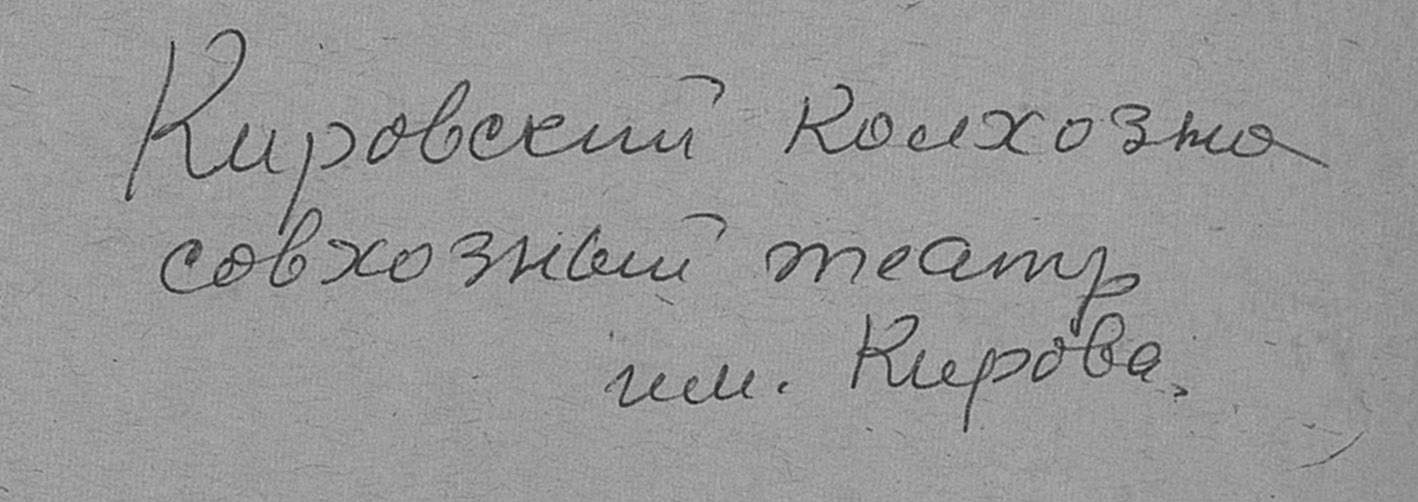 Кировский колхозно
совхозный театр
им. Кирова.